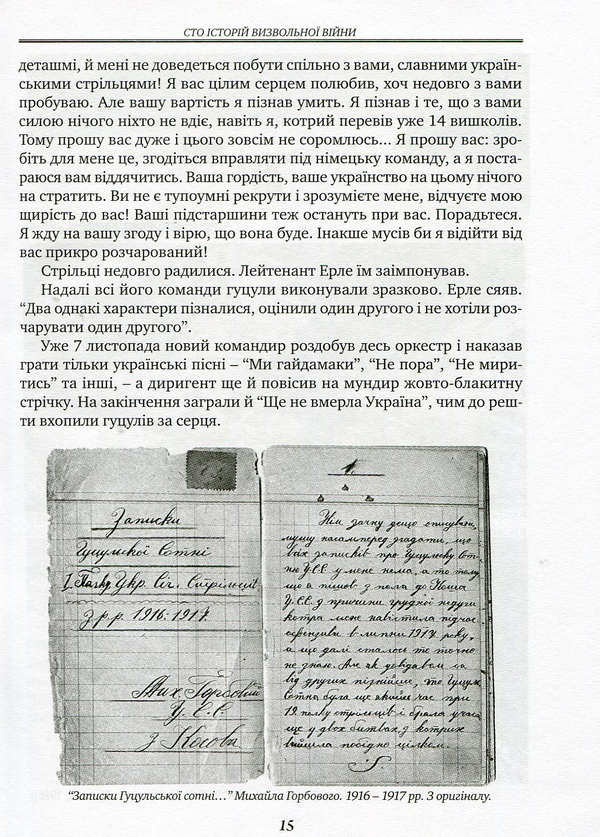 СТО ІСТОРІЙ ВИЗВОЛЬНОЇ ВІЙНИ
деташмі, й мені не доведеться побути спільно з вами, славними україн-
ськими стрільцями! Я вас цілим серцем полюбив, хоч недовго з вами
пробуваю. Але вашу вартість я пізнав умить. Я пізнав і те, що з вами
силою нічого ніхто не вдіє, навіть я, котрий перевів уже 14 вишколів.
Тому прошу вас дуже і цього зовсім не соромлюсь... Я прошу вас: зро-
біть для мене це, згодіться вправляти під німецьку команду, а я поста-
раюся вам віддячитись. Ваша гордість, ваше українство на цьому нічого
на стратить. Ви не є тупоумні рекрути і зрозумієте мене, відчуєте мою
щирість до вас! Ваші підстаршини теж остануть при вас. Порадьтеся.
Я жду на вашу згоду і вірю, що вона буде. Інакше мусів би я відійти від
вас прикро розчарований!
Стрільці недовго радилися. Лейтенант Ерле їм заімпонував.
Надалі всі його команди гуцули виконували зразково. Ерле сяяв.
“Два однакі характери пізналися, оцінили один другого і не хотіли роз-
чарувати один другого”.
Уже 7 листопада новий командир роздобув десь оркестр і наказав
грати тільки українські пісні – “Ми гайдамаки”, “Не пора”, “Не мири-
тись” та інші, – а диригент ще й повісив на мундир жовто-блакитну
стрічку. На закінчення заграли й “Ще не вмерла Україна”, чим до реш-
ти вхопили гуцулів за серця.
Записки
Гуцулскої Сотні
I. Полку Укр. Січ. Стрільців
З р.р. 1916-1917.
Мих. Горбовий
У.С.С.
з Косова
1.
Нім зачну дещо описувати,
мушу насамперед згадати, що
всіх записків про Гуцулску Сот-
ню У.С.С. у мене нема, а то тому
що я пішов з поля до Коша
У.С.С. з причини грудної недуги
котра мене навістила підчас
офензиви в липни 1917 року,
а що далі сталося то точно
не знаю. Але як довідався
від других пізнійше, то Гуцул.
Сотня була ще якийсь час при
19. полку стрільців і брала участь
ще у двох битвах з котрих
вийшла побідно цілком.
“Записки Гуцульської сотні...” Михайла Горбового. 1916 – 1917 рр. З оригіналу.
15